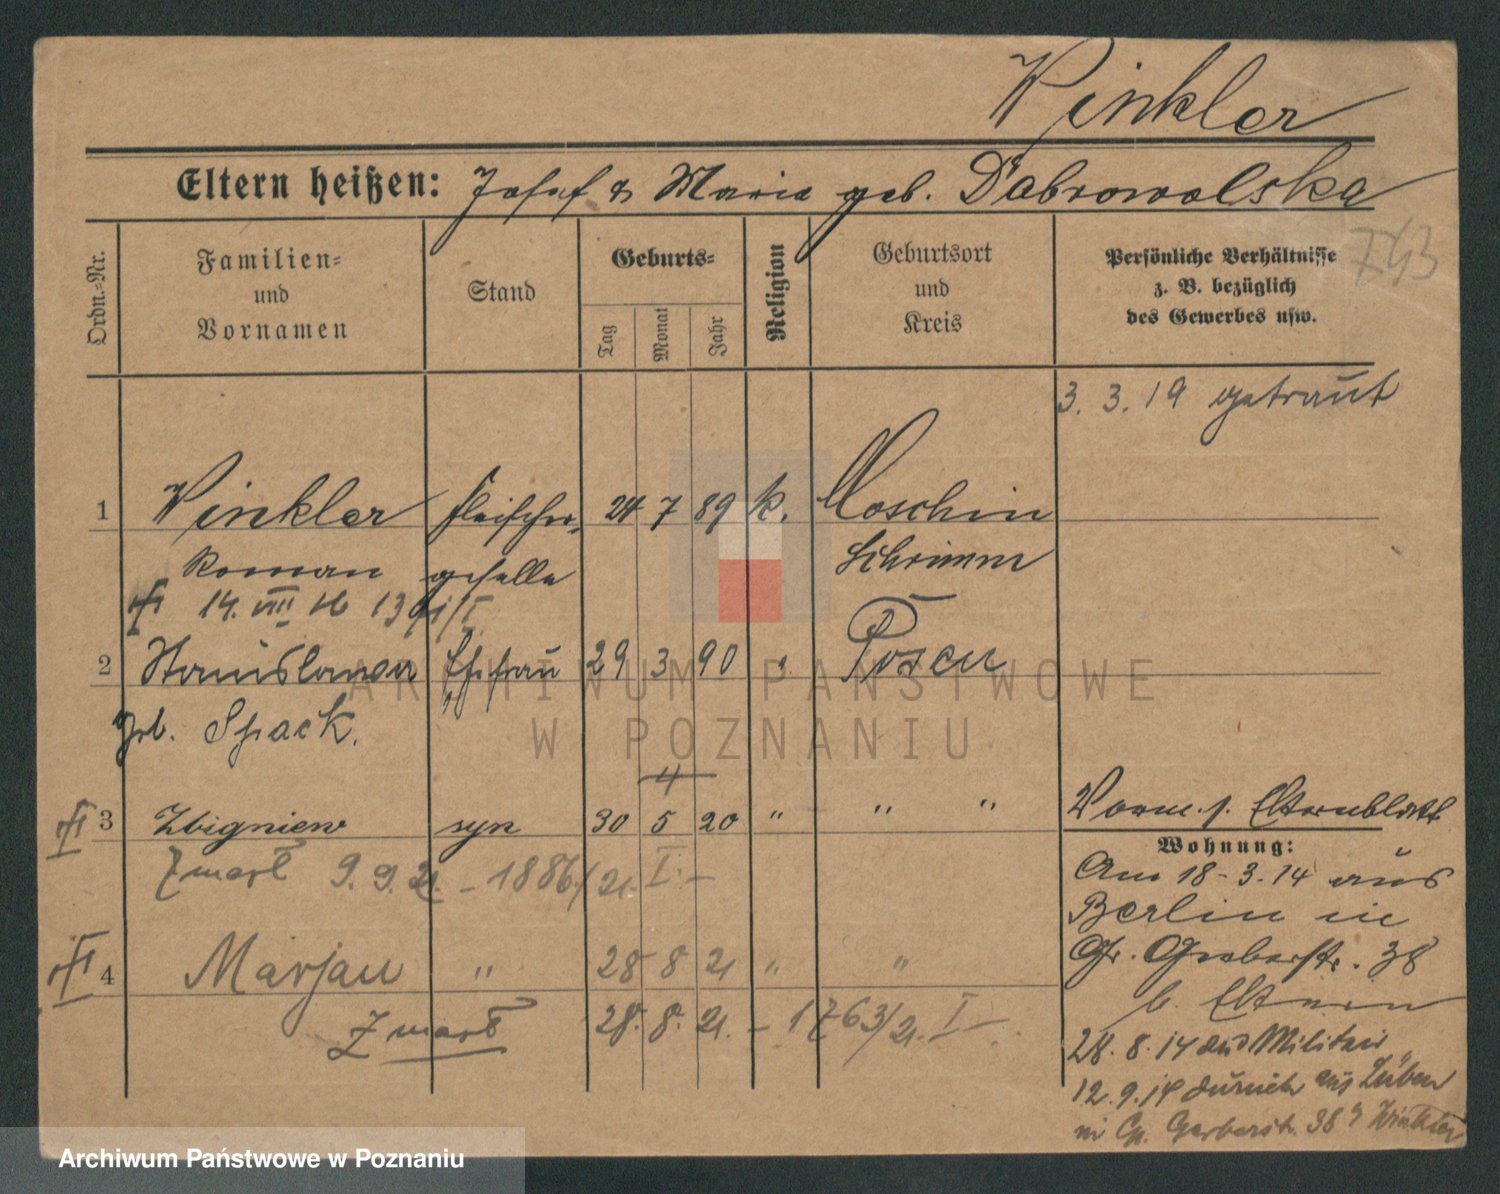 Winkler
Eltern heißen: Josef & Maria geb. Dabrowolska
743
Ordn.-Nr.
Familien-
und
Vornamen
Stand
Geburts-
Tag
Monat
Jahr
Religion
Geburtsort
und
Kreis
Persönliche Verhältnisse
z. B. bezüglich
des Gewerbes usw.
3. 3. 19 getraut
1 Winkler Fleischer- 24 7 89 k. Moschin
Roman geselle Schrimm
14. VIII 16
2 Stanislawa Ehefrau 29 3 90 " Posen
geb. Spack.
4
3 Zbigniew syn 30 5 20 " " "
Zmarł 9. 9. 21. - 1886/21. I. -
4 Marjan " 28 8 21 " "
Zmarł 28. 8. 21. - 1763/21. I -
Vorm. s. Elternblatt
Wohnung:
Am 18-3.14 aus
Berlin in
Gr. Gerberstr. 38
b. Eltern
28. 8. 14 zus Militair
12. 9. 14 zurück aus Lüben
in Gr. Gerberstr. 38 b Winkler
ARCHIWUM PAŃSTWOWE
W POZNANIU
Archiwum Państwowe w Poznaniu